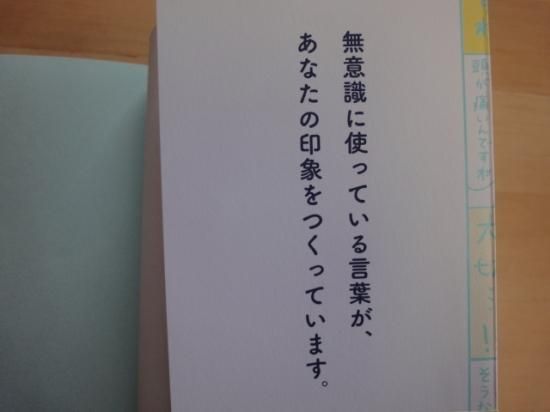 無意識に使っている言葉が、
あなたの印象をつくっています。
頭が痛いんですね
大切さ！
そうな